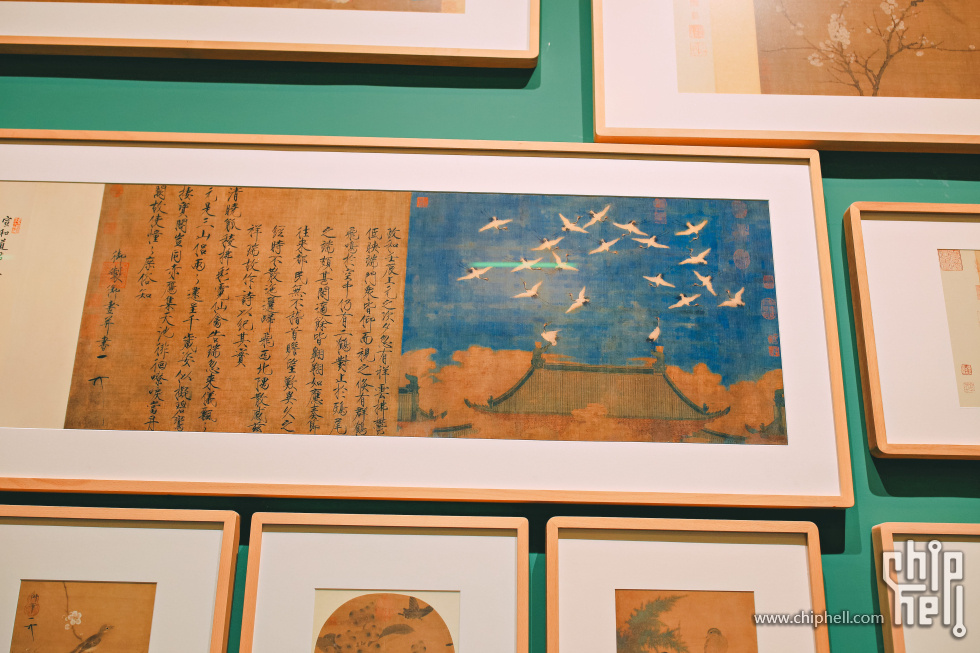 政和壬辰上元之次夕忽有祥雲拂鬱
低映端門眾皆仰而視之倏有群鶴
飛鳴於空中仍有二鶴對止於鴟尾
之端頗甚閒適餘皆翱翔如應奏節
往來都民無不稽首瞻望歎異久之
經時不散迤邐歸飛西北隅散感茲
祥瑞故作詩以紀其實
清曉觚稜拂彩霓仙禽告瑞忽來儀飄々
元是三山侶兩々還呈千歲姿似擬碧鸞
棲寶閣豈同赤鴈集天池徘徊嘹唳當丹
闕故使憧々庶俗知
御製御畫并書
宣和
www.chiphell.com
chip
hell